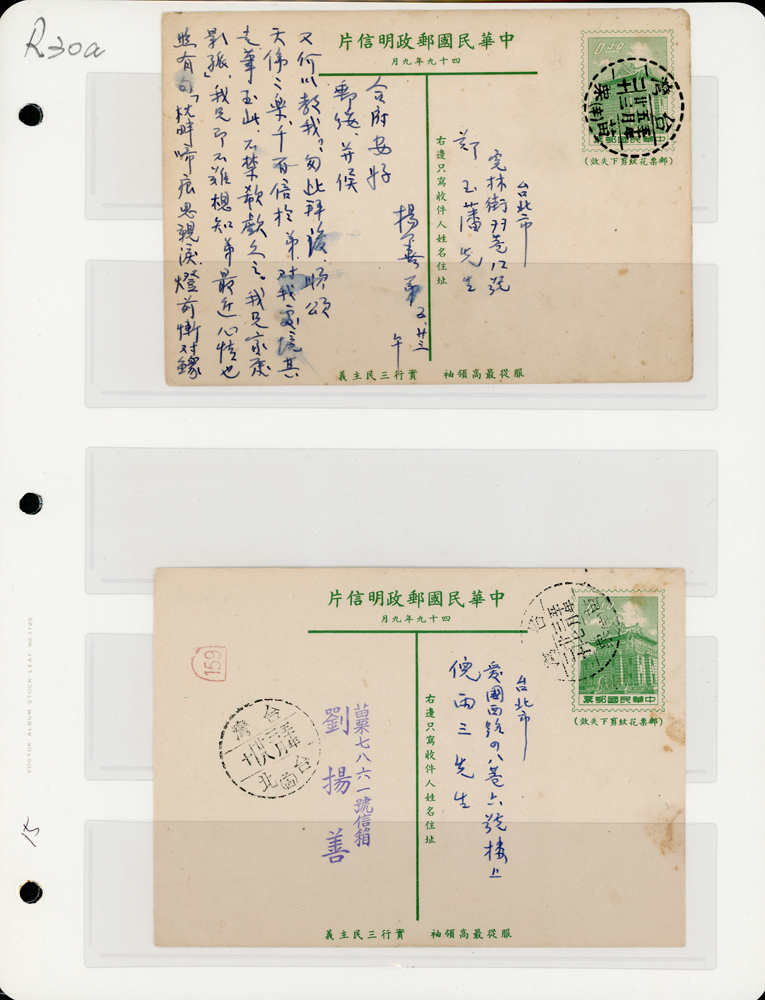 R30a
中華民國郵政明信片
四十九年九月
(郵票花紋剪下失效)
中華民國郵票
台北市
鄭玉藩先生
右邊只寫收件人姓名住址
楊善弟 五.廿三 午
合府安好
郵绥,并候
又何以教我?匆此拜復,順頌
天倫之樂,千百倍於弟.對我處境其
走筆至此,不禁欷歔久之。我兄家庭
影孤」我兄即不難想知弟最近心情也
照有句「枕畔啼痕思親淚,燈前慚對
服從最高領袖 實行三民主義
中華民國郵政明信片
四十九年九月
159
(郵票花紋剪下失效)
中華民國郵票
台北市
愛國西路四八巷六號樓上
倪雨三先生
右邊只寫收件人姓名住址
菖菓七八六一號信箱
劉揚善
台灣
台北
服從最高領袖 實行三民主義
VOSTOK ALBUM STOCK LEAF NO.1126